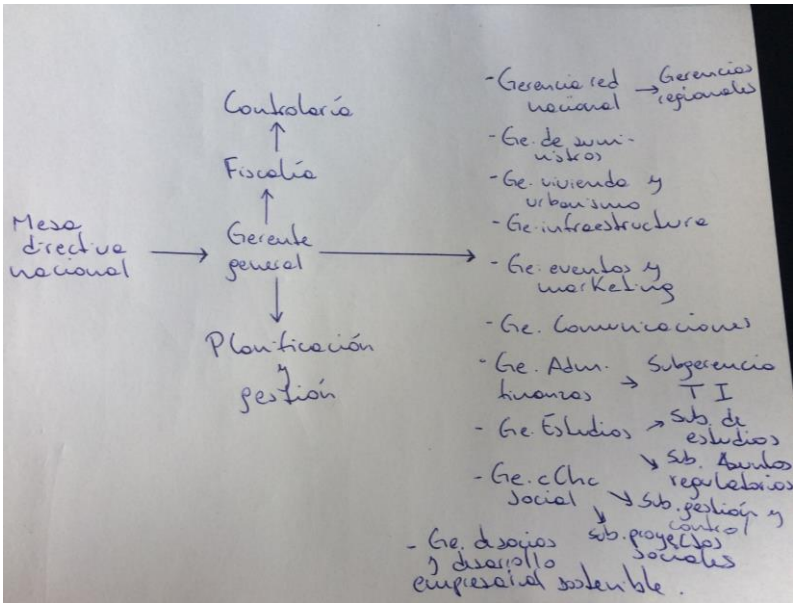 Controlaría
↑
Fiscalía
↑
Mesa directiva nacional → Gerente general →
↓
Planificación
y
gestión
- Gerencia red nacional → Gerencias regionales
- Ge. de sumi-
nistros
- Ge. vivienda y
urbanismo
- Ge. infraestructura
- Ge. eventos y
marketing
- Ge. Comunicaciones
- Ge. Adm. finanzas → Subgerencia TI
- Ge. Estudios → Sub. de estudios
↘ Sub. Asuntos regulatorios
- Ge. cChc social ↘ Sub. gestión y control
↘ Sub. proyectos sociales
- Ge. d socios
y desarrollo
empresarial sostenible.